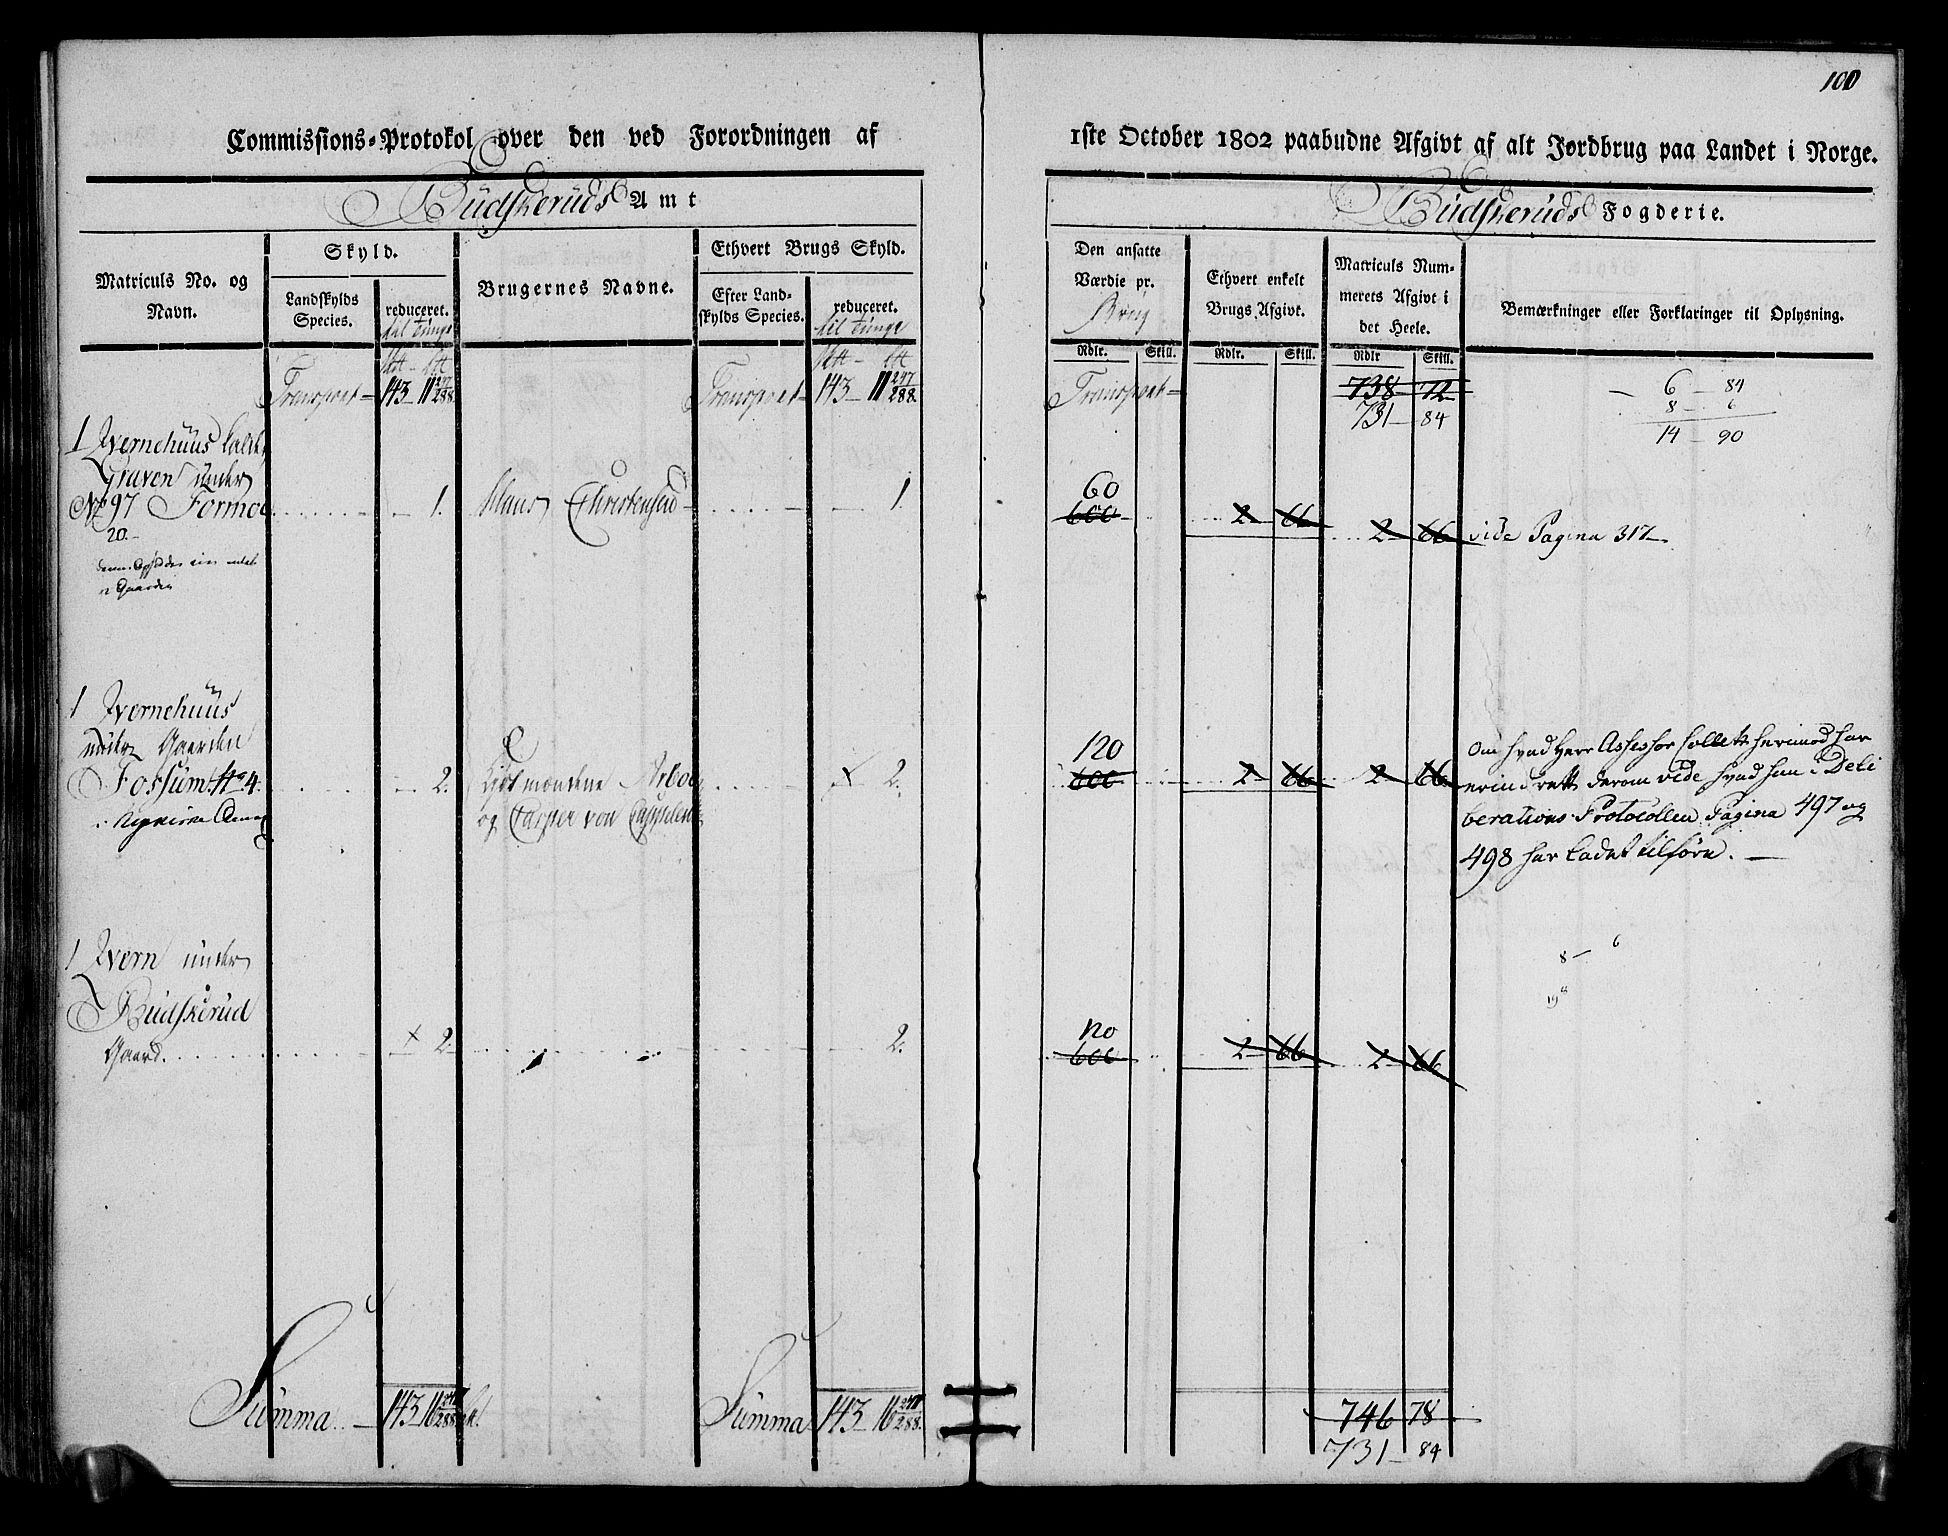 100
Commissions-Protokol over den ved Forordningen af
1ste October 1802 paabudne Afgivt af alt Jordbrug paa Landet i Norge.
Büdskerüds Amt
Büdskerüds Fogderie.
Matriculs No. og Navn.
Skyld.
Landskylds Species.
reduceret.
til Tünge
Brugernes Navne.
Ethvert Brugs Skyld.
Efter Landskylds Species.
reduceret.
til Tünge
Den ansatte Værdie pr.
Brüg
Rdlr. Skill.
Ethvert enkelt Brugs Afgivt.
Rdlr. Skill.
Matriculs Nummerets Afgivt i det Heele.
Rdlr Skill.
Bemærkninger eller Forklaringer til Oplysning.
Transport – 143 – 11 247/288
Transport – 143 – 11 247/288
Transport –
738 – 72
731 – 84
6 – 84
8 – 6
14 – 90
1 Qvernehüüs kaldet
Graven under
No 97 Formoe
20.
1.
Claus Christensen
1.
60
600
2 – 66
2 – 66
vide Pagina 317.
1 Qvernehüüs
under Gaarden
Fossum No 4.
2.
Kjøbmændene
og Casper von Cappelen
2.
120
600
2 – 66
2 – 66
Om hvad Herr Assessor Collett herimod har
erindrett derom vide hvad han i Deli
berations Protocollen Pagina 497 og
498 har ladet tilføre.
8 – 6
1 Qvern under
Büdskerüd
Gaard
2.
2.
120
600
2 – 66
2 – 66
Summa 143 – 16 247/288
Summa 143 – 16 247/288
746 78
731 – 84